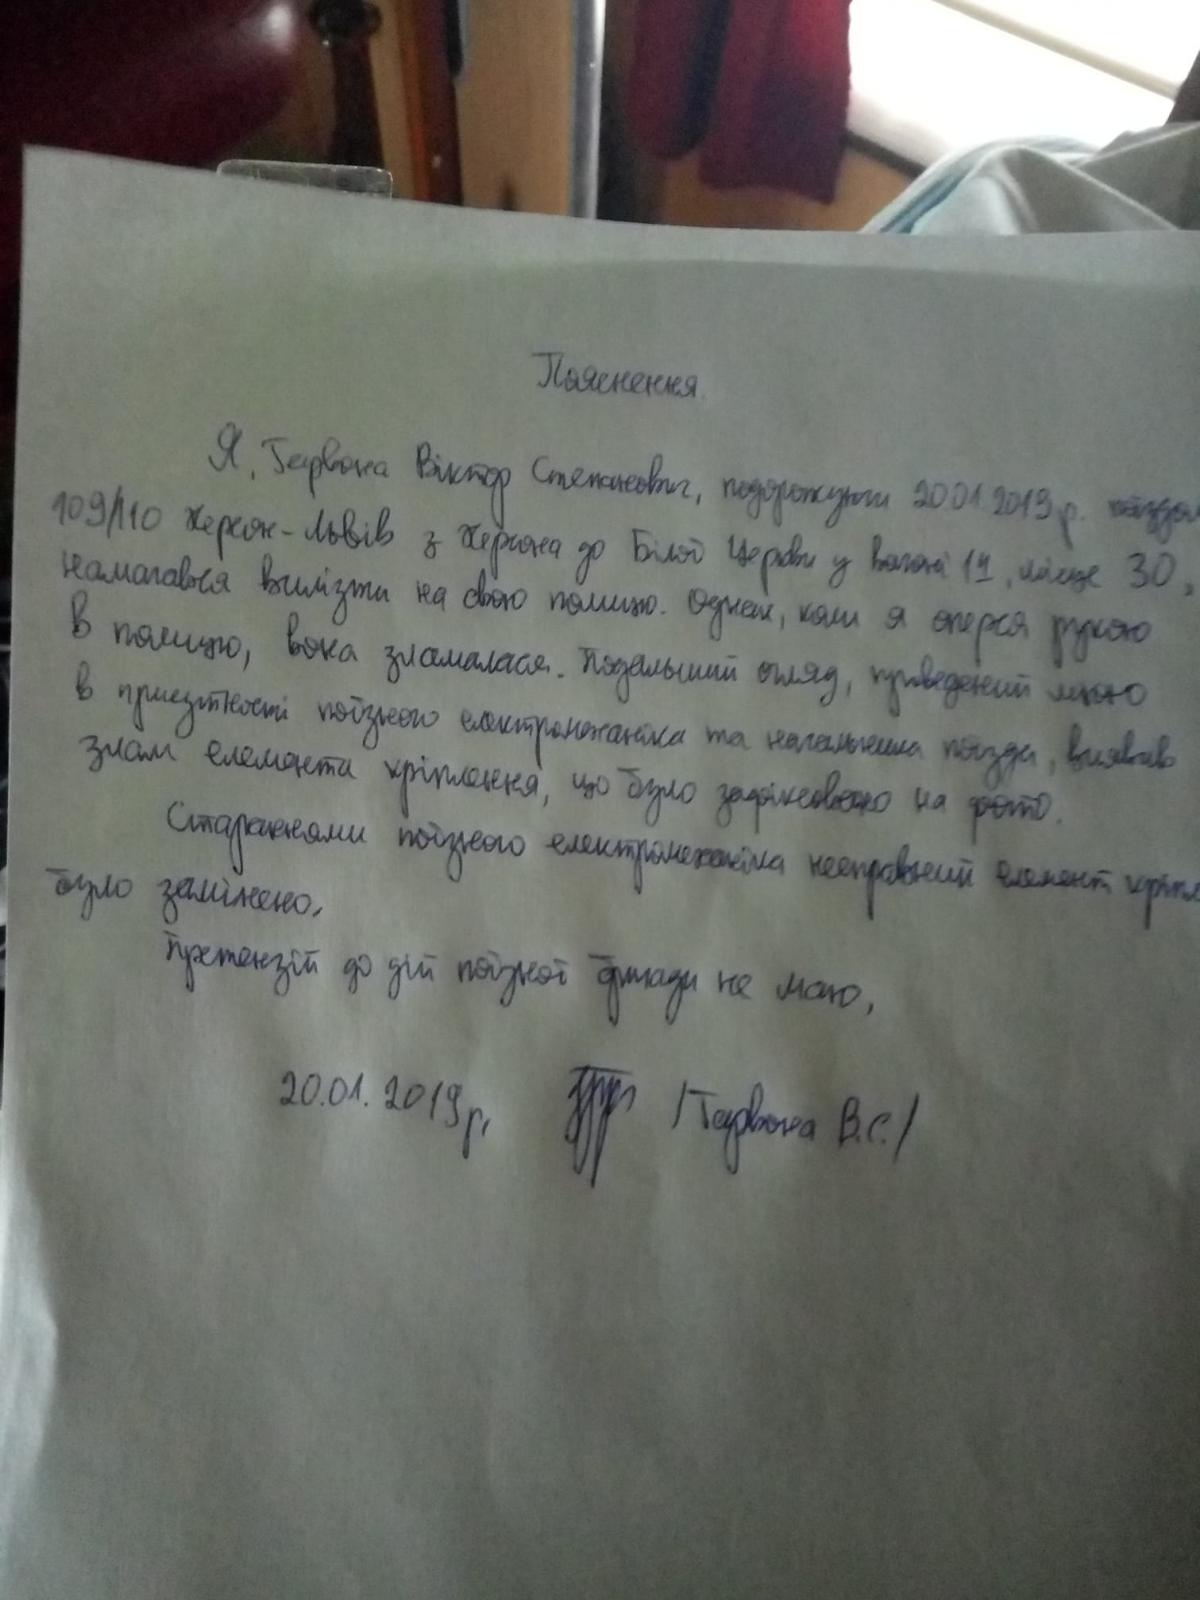 Пояснення.
Я, Гарвона Віктор Степанович, подорожуючи 20.01.2019 р. поїздом
109/110 Херсон-Львів з Херсона до Білої Церкви у вагоні 14, місце 30,
намагався вилізти на свою полицю. Однак, коли я оперся рукою
в полицю, вона зламалася. Подальший огляд, проведений мною
в присутності поїзного електромеханіка та начальника поїзда, виявив
злам елемента кріплення, що було зафіксовано на фото.
Стараннями поїзного електромеханіка несправний елемент кріпл
було замінено.
Претензій до дій поїзної бригади не маю.
20.01.2019 р. /Гарвона В.С./